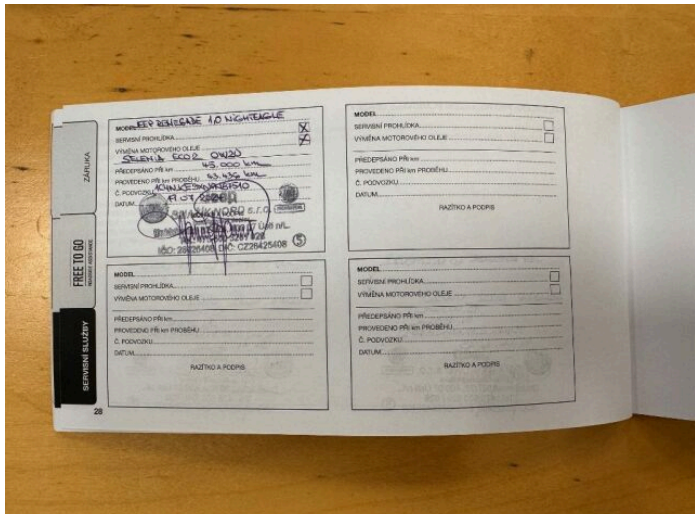 ZÁRUKA
FREE TO GO
SERVISNÍ SLUŽBY
MODEL JEEP RENEGADE 1,0 NIGHTEAGLE
SERVISNÍ PROHLÍDKA X
VÝMĚNA MOTOROVÉHO OLEJE X
SELENIA ECO2 0W20
PŘEDEPSÁNO PŘI km 45.000 km
PROVEDENO PŘI km PROBĚHU 43.436 km
Č. PODVOZKU
DATUM 17.07
NORD s.r.o.
Ústí n/L.
IČO: 28425408, DIČ: CZ28425408 5
MODEL
SERVISNÍ PROHLÍDKA
VÝMĚNA MOTOROVÉHO OLEJE
PŘEDEPSÁNO PŘI km
PROVEDENO PŘI km PROBĚHU
Č. PODVOZKU
DATUM
RAZÍTKO A PODPIS
MODEL
SERVISNÍ PROHLÍDKA
VÝMĚNA MOTOROVÉHO OLEJE
PŘEDEPSÁNO PŘI km
PROVEDENO PŘI km PROBĚHU
Č. PODVOZKU
DATUM
RAZÍTKO A PODPIS
MODEL
SERVISNÍ PROHLÍDKA
VÝMĚNA MOTOROVÉHO OLEJE
PŘEDEPSÁNO PŘI km
PROVEDENO PŘI km PROBĚHU
Č. PODVOZKU
DATUM
RAZÍTKO A PODPIS
28